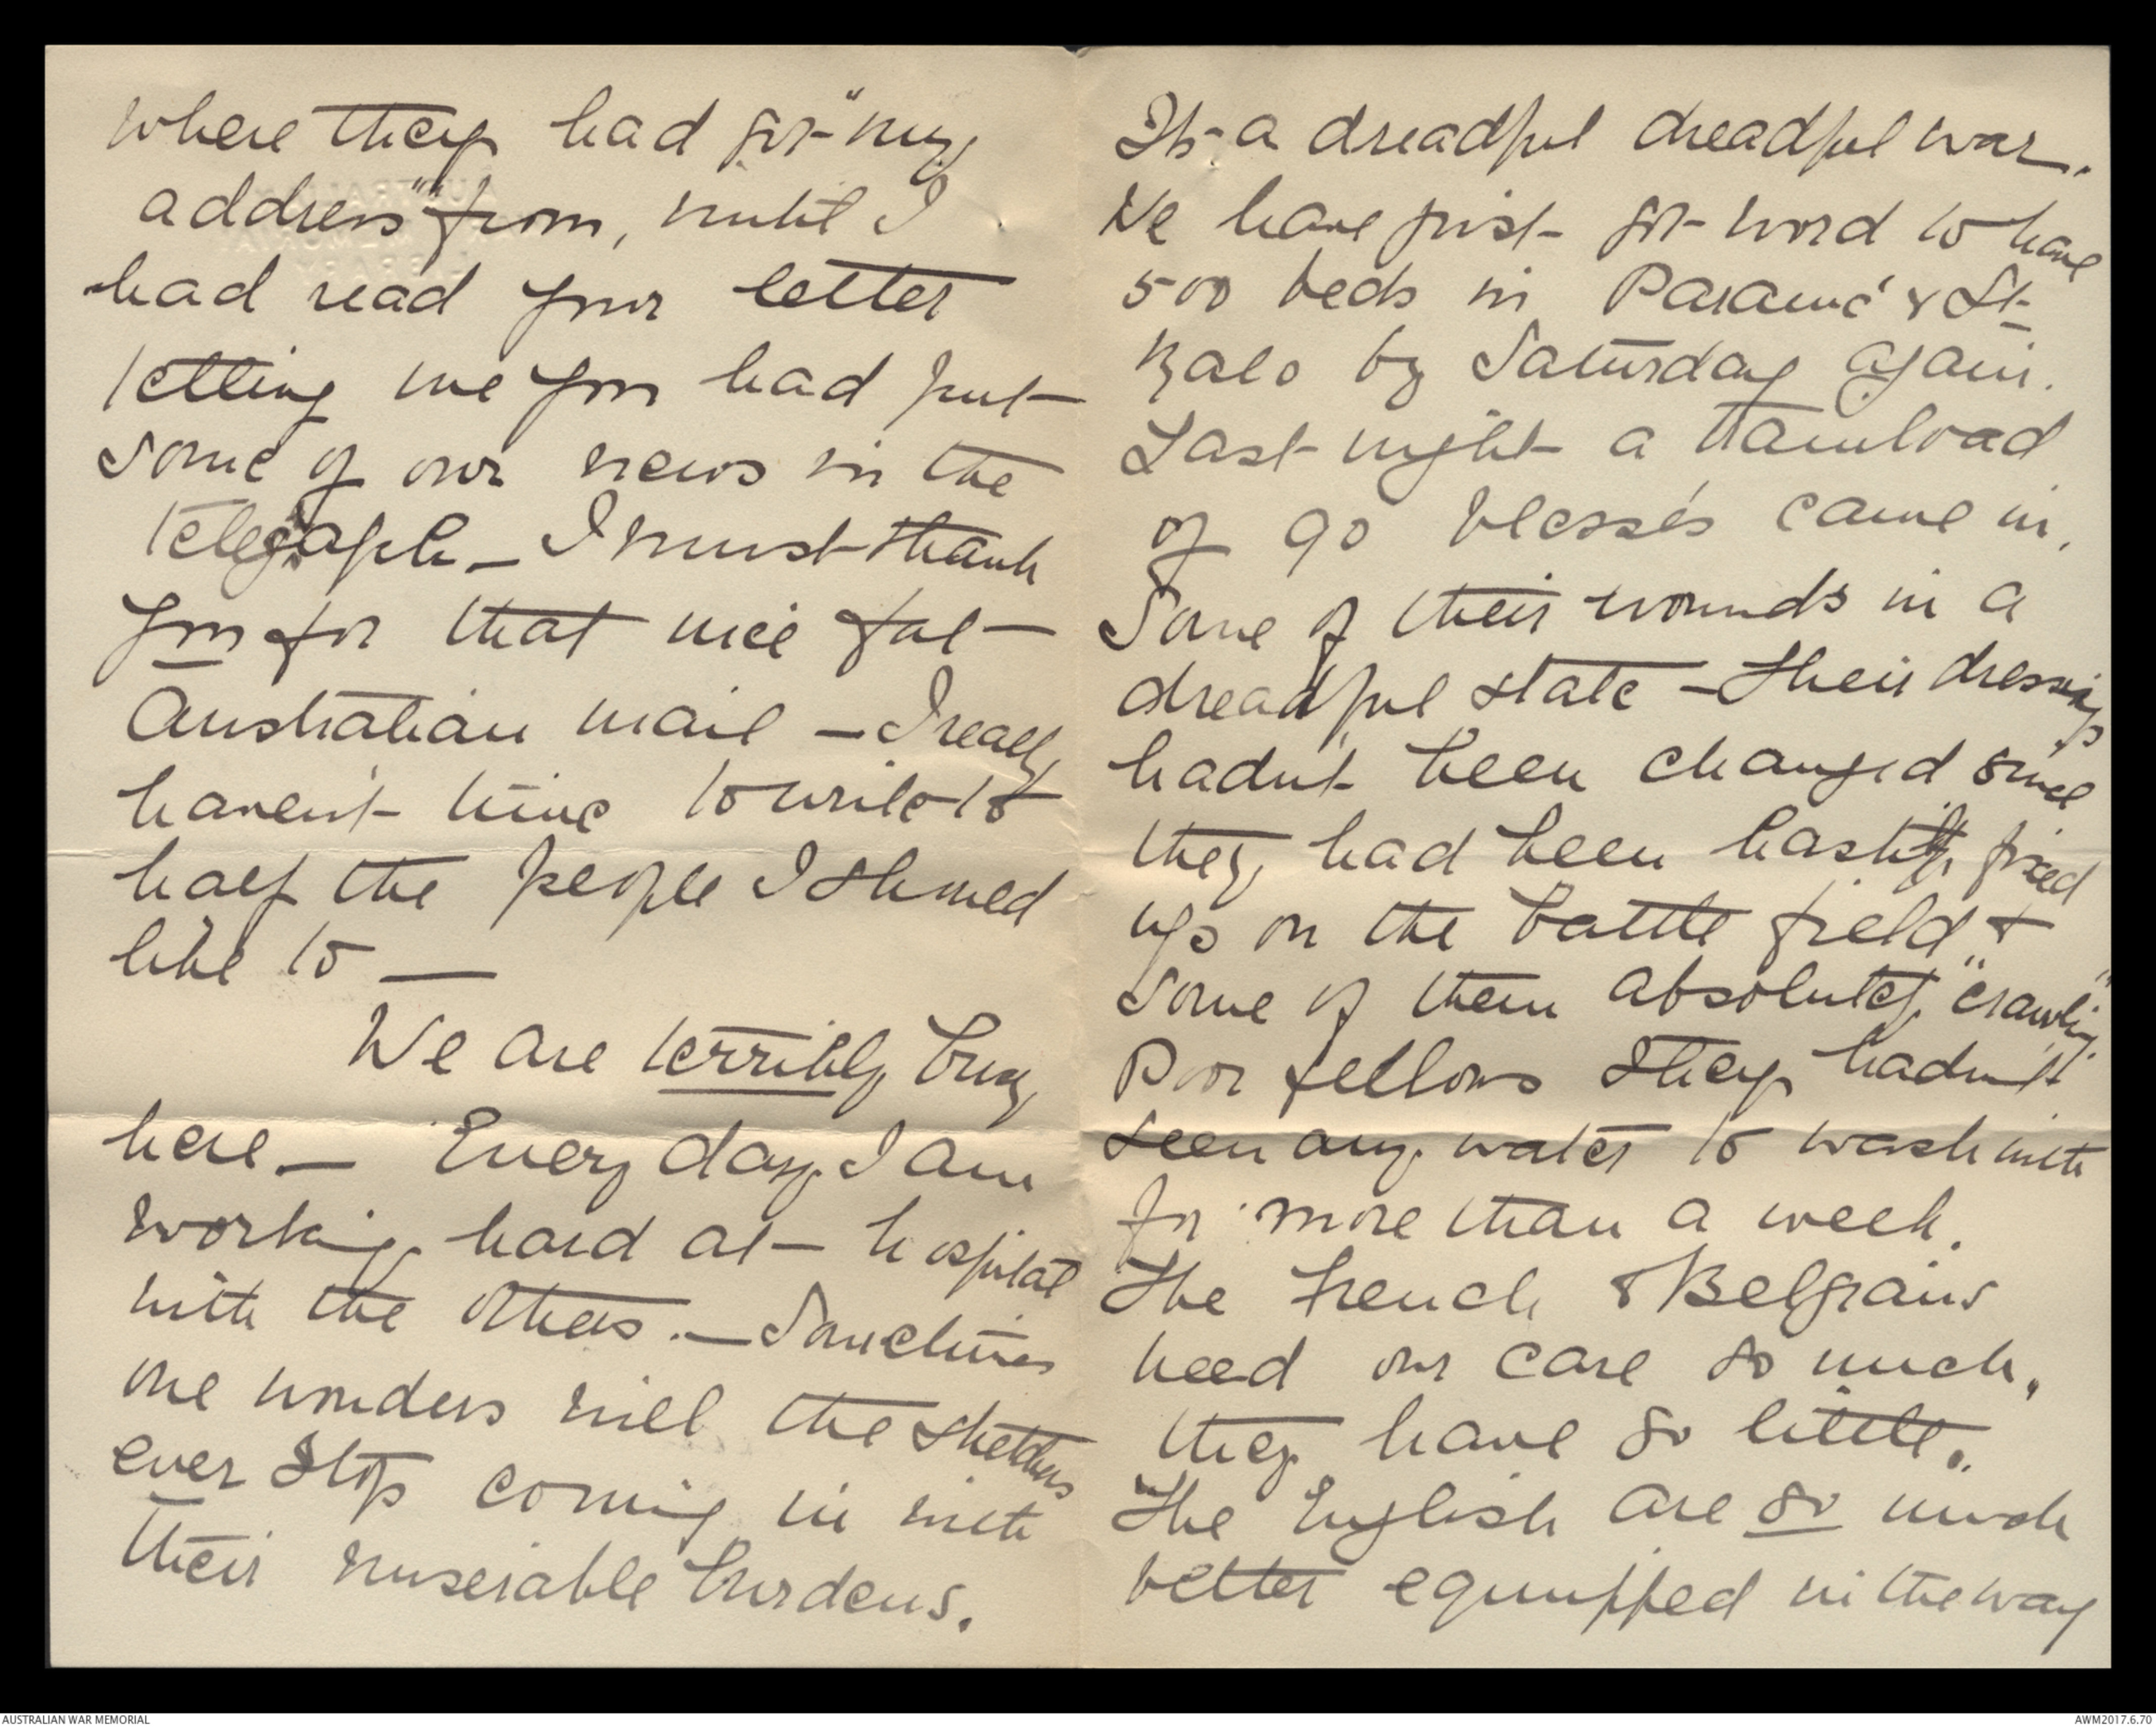 where they had got "my
address" from, until I
had read your letter
telling me you had put
some of our news in the
Telegraph_ I must thank
you for that nice fat
Australian mail _ I really
haven't time to write to
half the people I should
like to _
We are terribly busy
here _ Every day I am
working hard at hospital
with the others. _ Sometimes
one wonders will the stretchers
ever stop coming in with
their miserable burdens.
It's a dreadful dreadful war.
We have just got word to have
500 beds in Paramé & St
Malo by Saturday again.
Last night a trainload
of 90 blessés came in.
Some of their wounds in a
dreadful state _ their dressings
hadn't been changed since
they had been hastily fixed
up on the battle field &
some of them absolutely "crawling".
Poor fellows they hadn't
seen any water to wash with
for more than a week.
The French & Belgians
need our care so much,
they have so little.
The English are so much
better equipped in the way
AUSTRALIAN WAR MEMORIAL
AWM2017.6.70